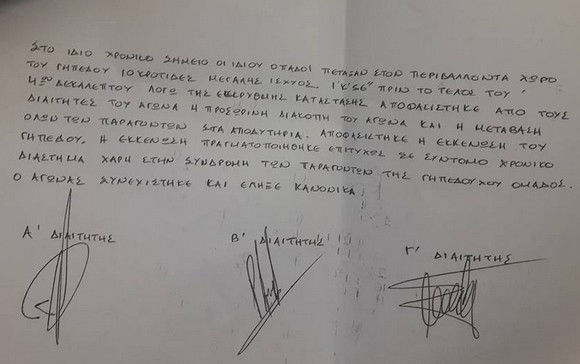 ΣΤΟ ΙΔΙΟ ΧΡΟΝΙΚΟ ΣΗΜΕΙΟ ΟΙ ΙΔΙΟΙ ΟΠΑΔΟΙ ΠΕΤΑΞΑΝ ΣΤΟΝ ΠΕΡΙΒΑΛΛΟΝΤΑ ΧΩΡΟ
ΤΟΥ ΓΗΠΕΔΟΥ 10 ΚΡΟΤΙΔΕΣ ΜΕΓΑΛΗΣ ΙΣΧΥΟΣ. 1'ΚΑΙ 56'' ΠΡΙΝ ΤΟ ΤΕΛΟΣ ΤΟΥ
4ΟΥ ΔΕΚΑΛΕΠΤΟΥ ΛΟΓΩ ΤΗΣ ΕΚΚΡΥΘΜΗΣ ΚΑΤΑΣΤΑΣΗΣ ΑΠΟΦΑΣΙΣΤΗΚΕ ΑΠΟ ΤΟΥΣ
ΔΙΑΙΤΗΤΕΣ ΤΟΥ ΑΓΩΝΑ Η ΠΡΟΣΩΡΙΝΗ ΔΙΑΚΟΠΗ ΤΟΥ ΑΓΩΝΑ ΚΑΙ Η ΜΕΤΑΒΑΣΗ
ΟΛΩΝ ΤΩΝ ΠΑΡΑΓΟΝΤΩΝ ΣΤΑ ΑΠΟΔΥΤΗΡΙΑ. ΑΠΟΦΑΣΙΣΤΗΚΕ Η ΕΚΚΕΝΩΣΗ ΤΟΥ
ΓΗΠΕΔΟΥ. Η ΕΚΚΕΝΩΣΗ ΠΡΑΓΜΑΤΟΠΟΙΗΘΗΚΕ ΕΠΙΤΥΧΩΣ ΣΕ ΣΥΝΤΟΜΟ ΧΡΟΝΙΚΟ
ΔΙΑΣΤΗΜΑ ΧΑΡΗ ΣΤΗΝ ΣΥΝΔΡΟΜΗ ΤΩΝ ΠΑΡΑΓΟΝΤΩΝ ΤΗΣ ΓΗΠΕΔΟΥΧΟΥ ΟΜΑΔΟΣ.
Ο ΑΓΩΝΑΣ ΣΥΝΕΧΙΣΤΗΚΕ ΚΑΙ ΕΛΗΞΕ ΚΑΝΟΝΙΚΑ.
Α' ΔΙΑΙΤΗΤΗΣ Β' ΔΙΑΙΤΗΤΗΣ Γ' ΔΙΑΙΤΗΤΗΣ